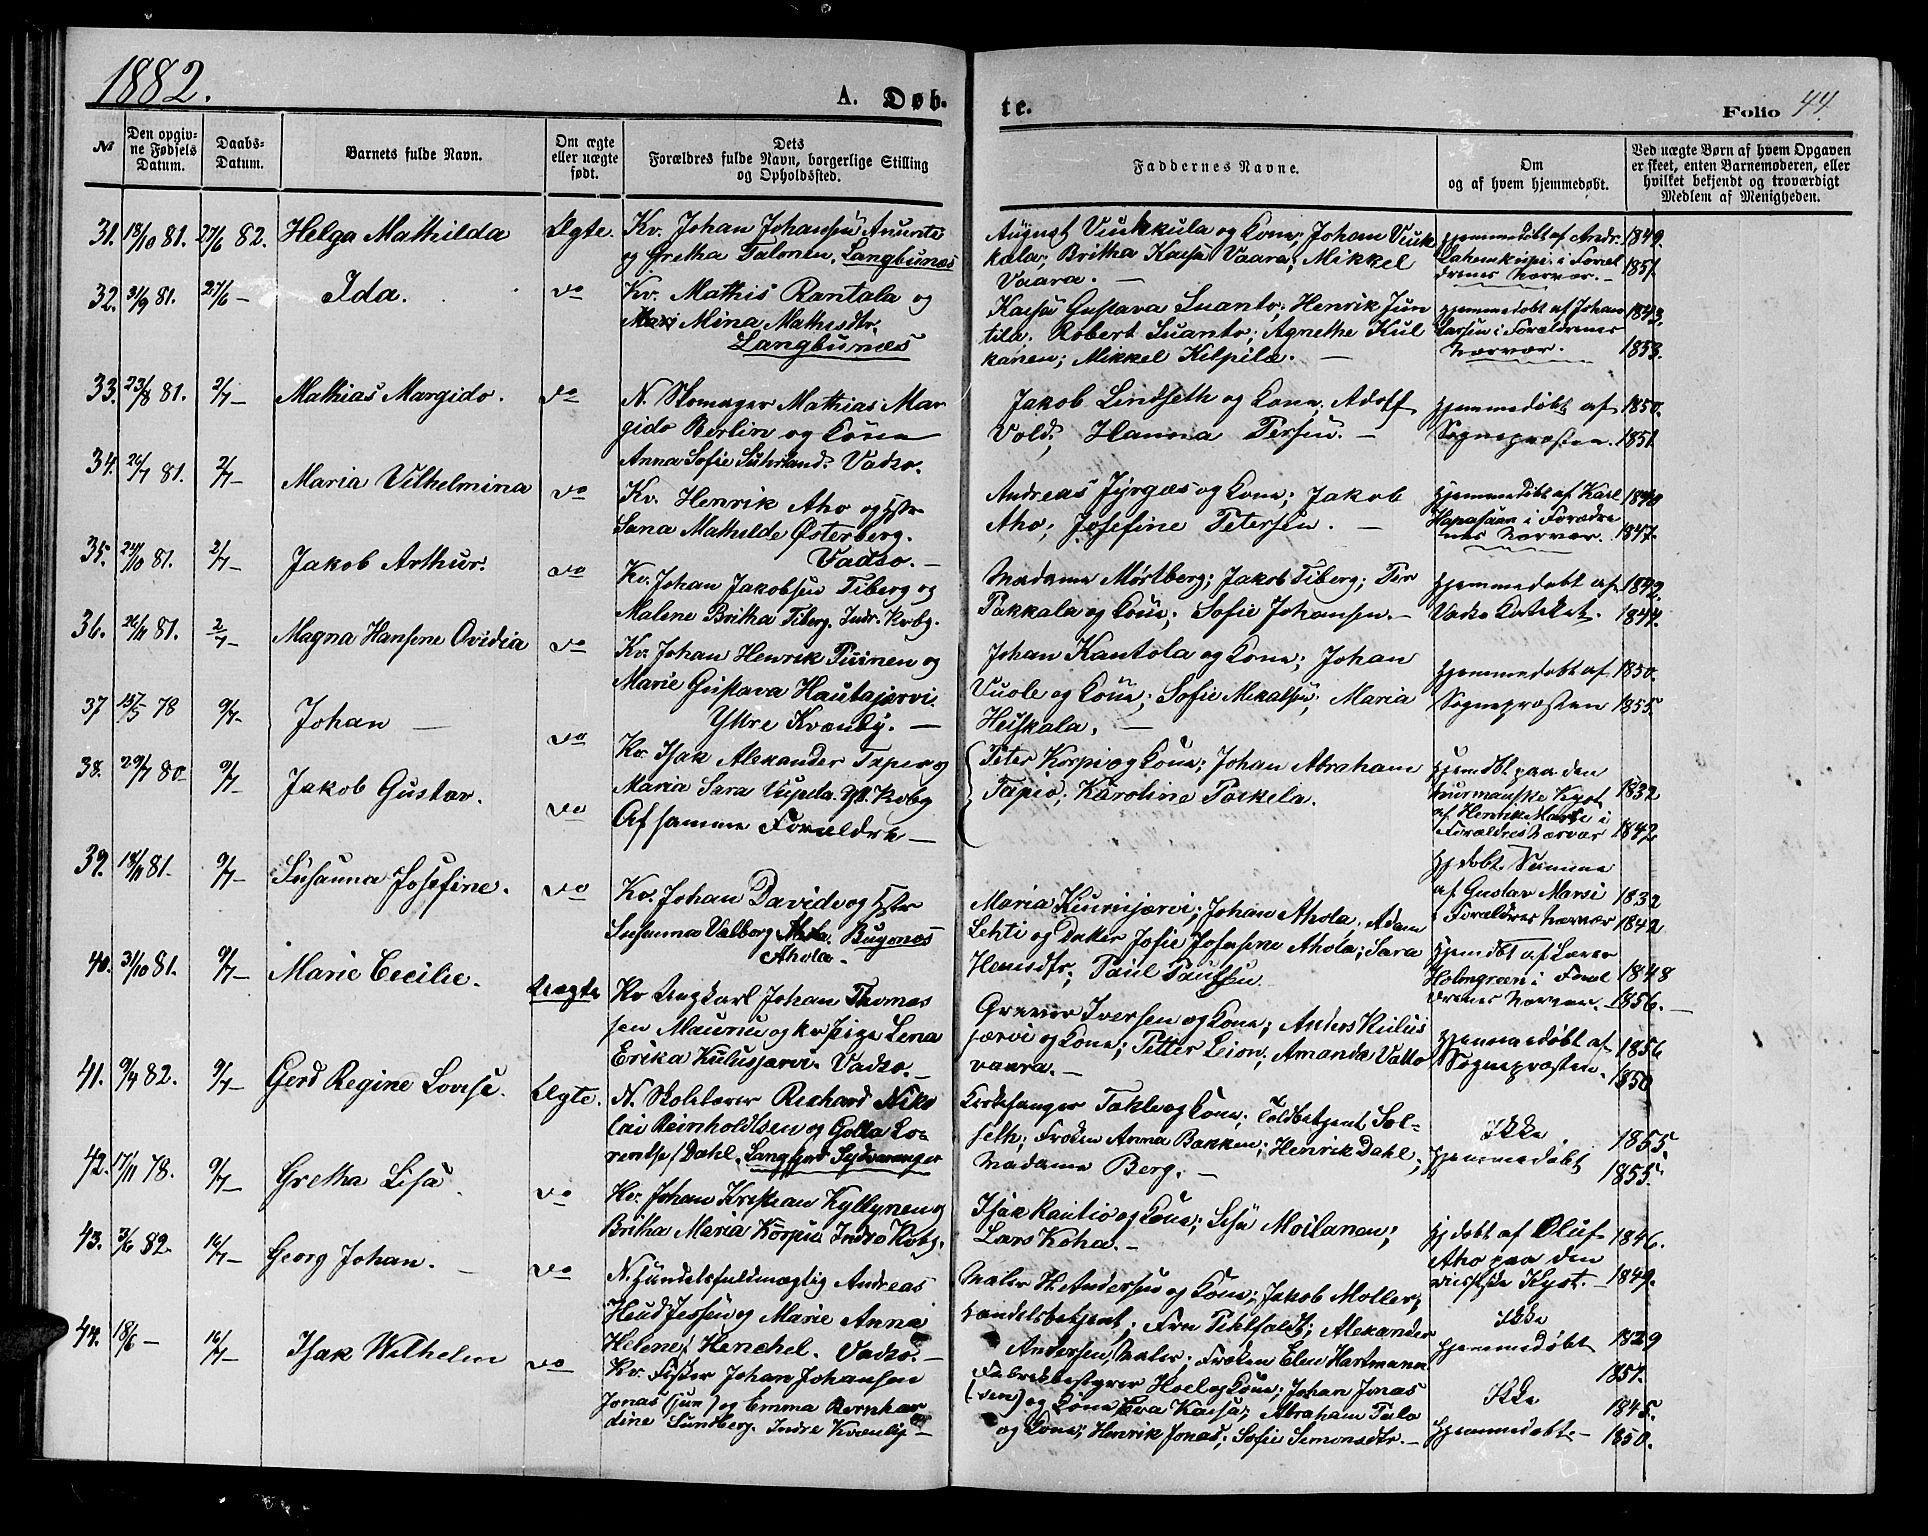 1882.
A. Døb-
te.
Folio 44.
№
Den opgiv-
ne Fødsels
Datum.
Daabs-
Datum.
Barnets fulde Navn.
Om ægte
eller uægte
født.
Dets
Forældres fulde Navn, borgerlige Stilling
og Opholdssted.
Faddernes Navne.
Om
og af hvem hjemmedøbt.
Ved uægte Børn af hvem Opgaven
er skeet, enten Barnemoderen, eller
hvilket bekjendt og troværdigt
Medlem af Menigheden.
31. 13/10 81. 27/6 82. Helga Mathilda Ægte.
Kv. Johan Johansen
og Gretha Talonen, Langbunæs
August Viinikkula og Kone; Johan Viink
kala; Britha Kaisa Vaara; Mikkel
Vaara. —
Hjemmedøbt af Andr.
i Foræl
drenes Nærvær. —
1849.
1851.
32. 3/9 81. 27/6 — Ida. do
Kv. Mathis Rantala og
Mina Mathisdtr.
Langbunæs
Kaisa Gustava Suanto; Henrik Jun
tila; Robert Suanto; Agnethe Kul
kanen; Mikkel Kilpilæ. —
Hjemmedøbt af Johan
Larsen i Forældrenes
Nærvær.
1843.
1853.
33. 23/8 81. 2/7 — Mathias Margido. do
N. Skomager Mathias Mar
gido Berlin og Kone
Anna Sofie Suhrland. Vadsø.
Jakob Lindseth og Kone; Adolf
Vold; Hanna Persen. —
Hjemmedøbt af
Sognepræsten.
1850.
1851.
34. 26/7 81. 2/7 — Maria Vilhelmina do
Kv. Henrik Aho og Hstr
Sana Mathilde Østerberg.
Vadsø. —
Andreas Jyrgæs og Kone; Jakob
Aho; Josefine Petersen. —
Hjemmedøbt af Karl
Hapasaari i Forældre
nes Nærvær.
1840
1847.
35. 24/10 81. 2/7 — Jakob Arthur. do
Kv. Johan Jakobsen Tiberg og
Malene Britha Tiberg. Indr. Kvbg.
Madame Mørtberg; Jakob Tiberg; Per
Pakkala og Kone; Sofie Johansen. —
Hjemmedøbt af
Vadsø Kateket.
1842.
1844.
36. 26/11 81. 2/7 — Magna Hansine Ovidia do
Kv. Johan Henrik Puinen og
Marie Gustava Hautajærvi
Yttre Kvænby. —
Johan Kantola og Kone; Johan
Vuole og Kone; Sofie Mikalsen; Maria
Heiskala. —
Hjemmedøbt af
Sognepræsten
1850.
1855.
37 15/3 78 9/7 — Johan — do
Kv. Isak Alexander Tapio og
Maria Sara Yt. Kvbg
Peter Korpi og Kone; Johan Abraham
Tapio; Karoline Porkela.
Hjemdbt paa den
murmanske Kyst
af Henrik i
Forældres Nærvær
1832
1842
38. 29/7 80 9/7 — Jakob Gustav. do
Af samme Forældre —
Hjdøbt. Samme
af Gustav Marsi
i Forældres Nærvær
1832
1842
39. 18/11 81. 9/7 — Susanna Josefine. do
Kv. Johan Davids og Hstr
Susanna Valborg Bugønæs
Ahola.
Maria Kiurujærvi; Johan Ahola; Adam
Lehti og Datter Josefine Ahola; Sara
Hansdtr; Paul Paulsen.
Hjemdøbt af Lærer
Holmgreen i Foræl
drenes Nærvær.
1848
1856. —
40. 31/10 81. 9/7 — Marie Cecilie. Uægte
Kv Ungkarl Johan Thomas
sen Maunu og kv Pige Lena
Erika Kulusjærvi. Vadsø. —
Graver Iversen og Kone; Anders Kulus
jærvi og Kone; Petter Leion; Amanda Valto
vaara. —
Hjemmedøbt af
Sognepræsten.
1856
1850
41. 9/4 82. 9/7 — Gerd Regine Lovise. Ægte.
N. Skolelærer Richard Niko
lai Reinholdtsen og Golla Lo-
rentse Dahl, Langfjord Sydvaranger
Kirkesanger Takle og Kone; Toldbetjent Sol-
seth; Frøken Anna Bakken; Henrik Dahl;
Madame Berg. —
Ikke
hjemmedøbt
1855.
1855.
42. 17/11 78. 9/7 — Gretha Lisa. do
Kv. Johan Kristian Kyllynen og
Britha Maria Korpi Indre Kvbg.
Isak Rautio og Kone; Lisa Moilanen;
Lars Koha. —
Hjdøbt af Oluf
Aho paa den
russiske Kyst. —
1846.
1849.
43. 3/6 82. 16/7 — Georg Johan. — do
N. Handelsfuldmægtig Andreas
Jessen og Marie Anna
Helene Henchel. Vadsø. —
Maler H. Andersen og Kone; Jakob Moller,
Handelsbetjent; Fru Alexander
Andersen, Maler; Frøken Elen Hartmann
Ikke
hjemmedøbt
1829
1851.
44. 18/6 — 16/7 — Isak Wilhelm do
Kv. Fisker Johan Johansen
Jonas (jun) og Emma Bernhar
dine Sundberg. Indre Kvænby —
Fabrikbestyrer Hoel og Kone; Johan Jonas
(sen) og Kone Eva Kaisa; Abraham Palo
og Kone; Henrik Jonas; Sofie Simonsdtr. —
Ikke
hjemmedøbt —
1845.
1850.